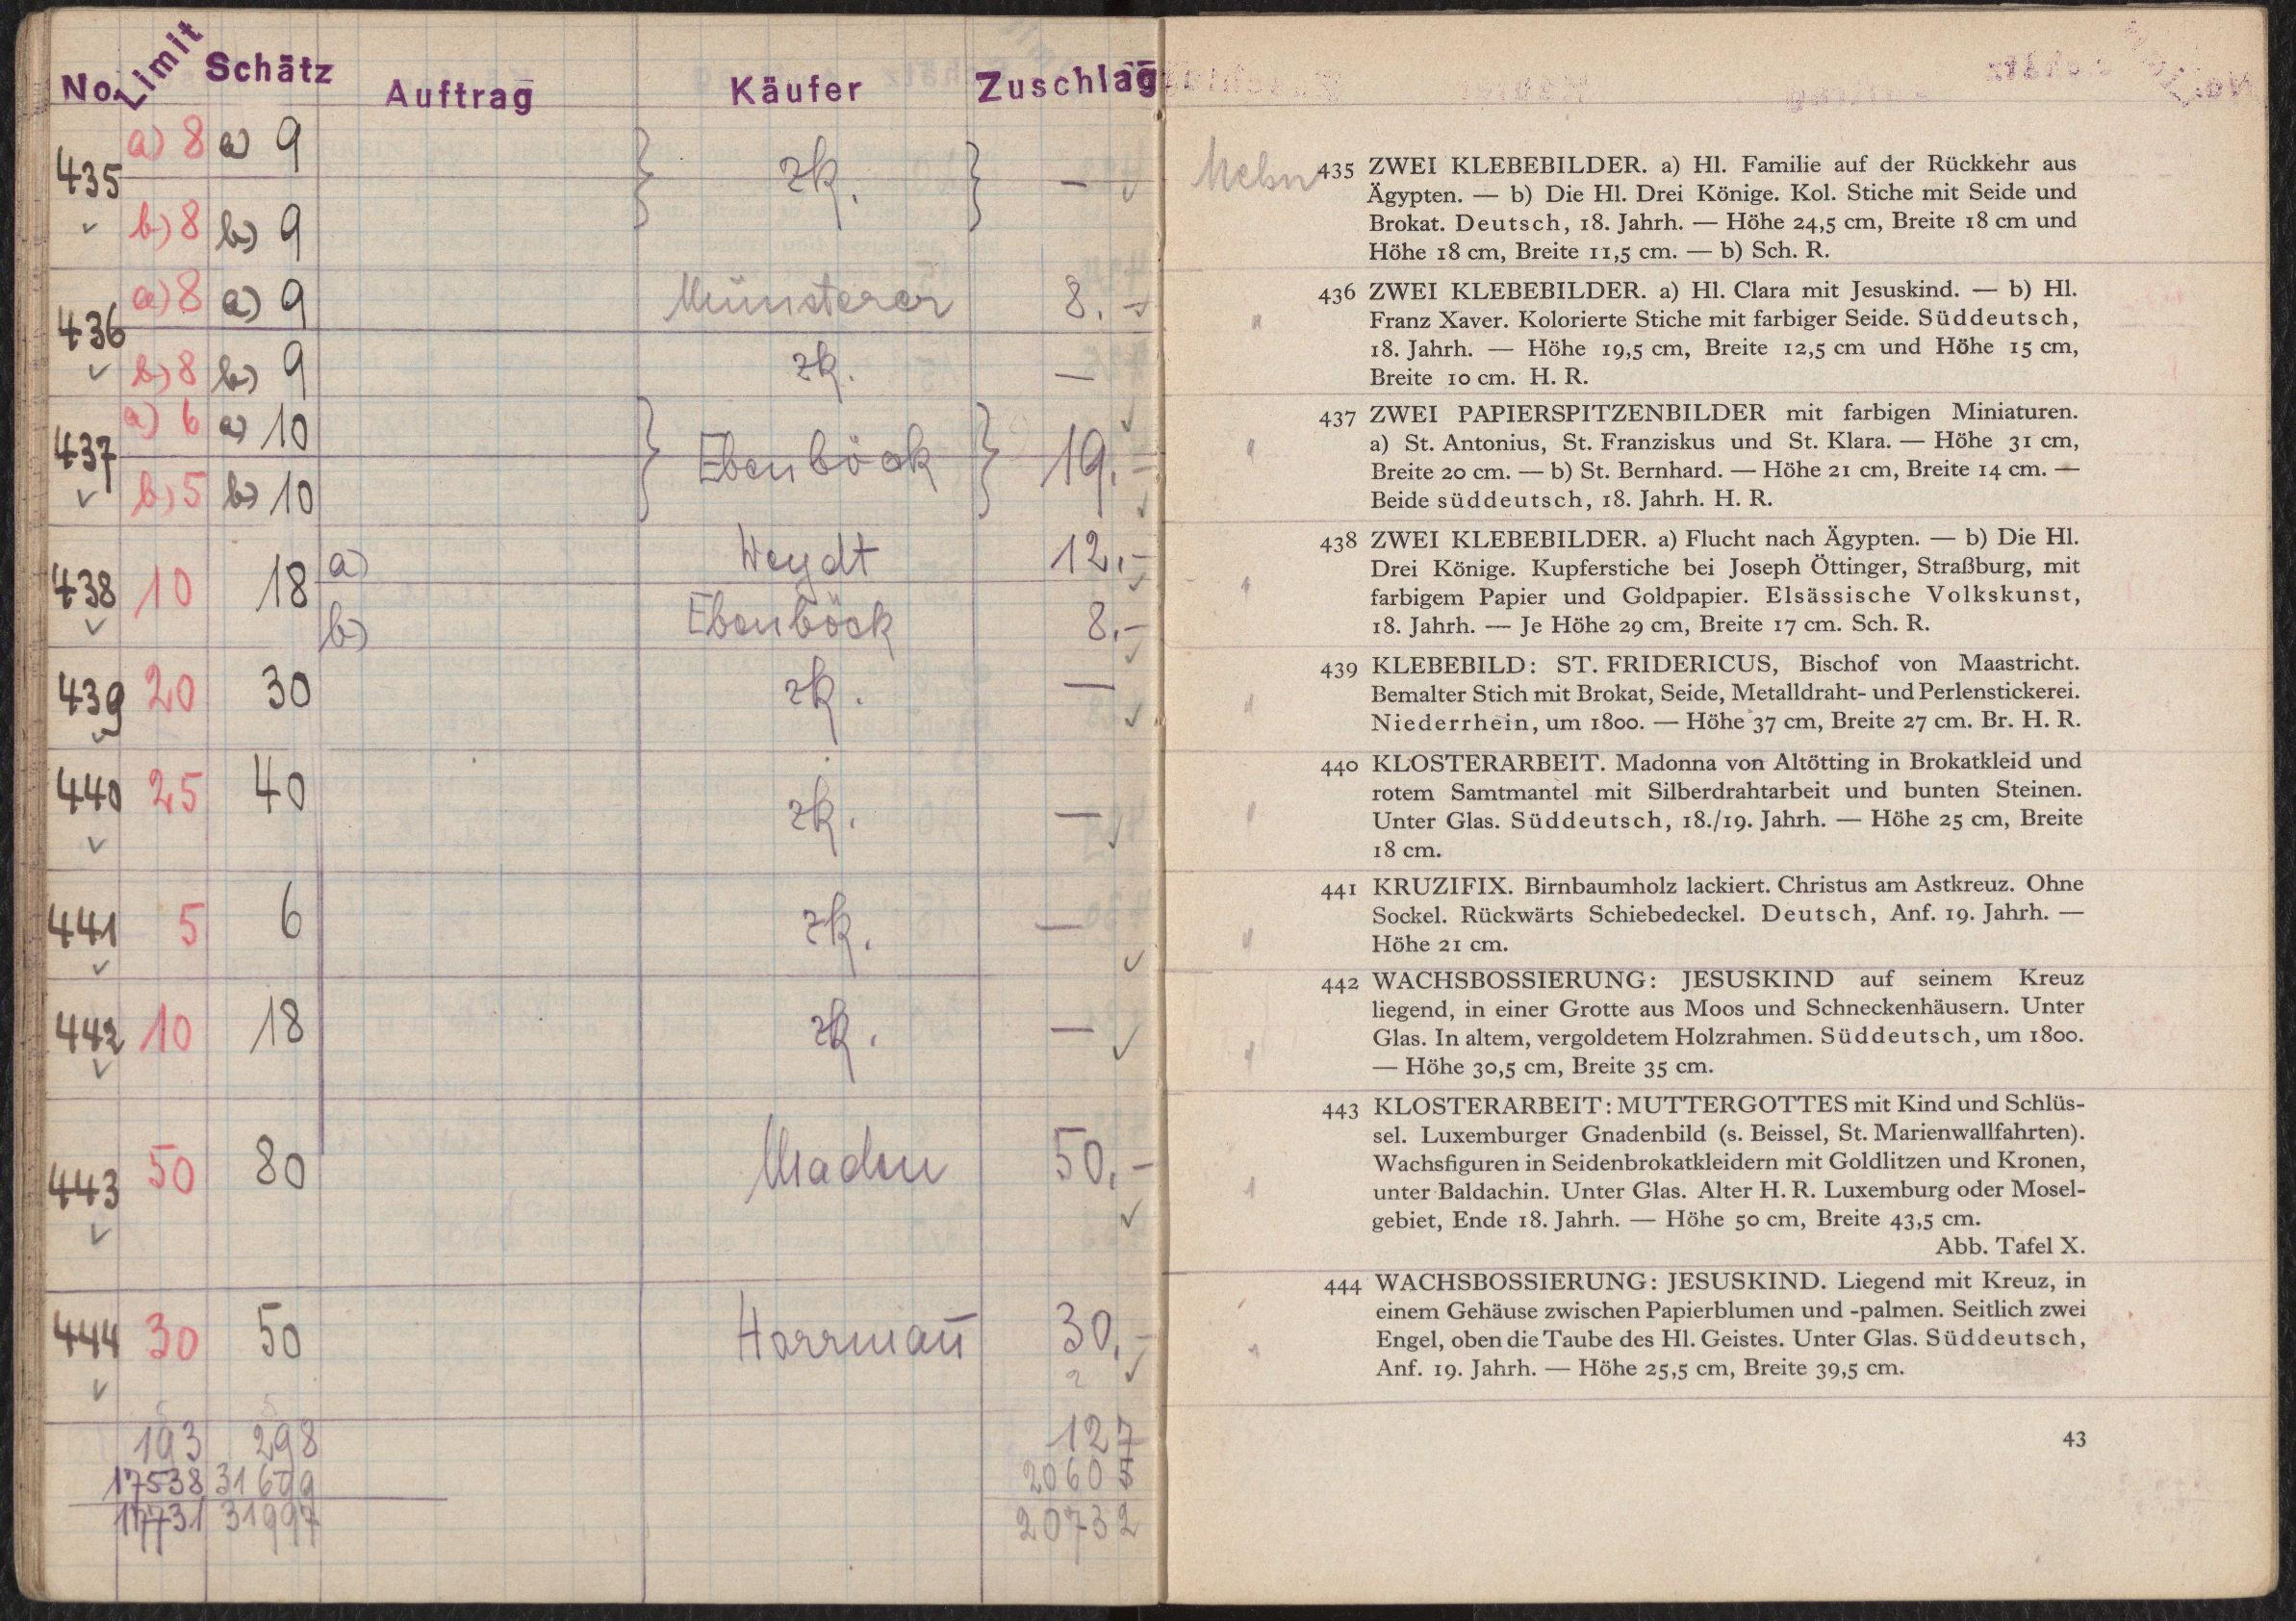 No. Limit Schätz Auftrag Käufer Zuschlag
435 a) 8 a) 9 zk. —
b) 8 b) 9
436 a) 8 a) 9 Münsterer 8.-
b) 8 b) 9 zk. —
437 a) 6 a) 10 Ebenböck 19.-
b) 5 b) 10
438 10 18 a) Weydt 12.-
b) Ebenböck 8.-
439 20 30 zk. —
440 25 40 zk. —
441 5 6 zk. —
442 10 18 zk. —
443 50 80 50.-
444 30 50 30.-
193 298 127
17538 31699 20605
17731 31997 20732
435 ZWEI KLEBEBILDER. a) Hl. Familie auf der Rückkehr aus
Ägypten. — b) Die Hl. Drei Könige. Kol. Stiche mit Seide und
Brokat. Deutsch, 18. Jahrh. — Höhe 24,5 cm, Breite 18 cm und
Höhe 18 cm, Breite 11,5 cm. — b) Sch. R.
436 ZWEI KLEBEBILDER. a) Hl. Clara mit Jesuskind. — b) Hl.
Franz Xaver. Kolorierte Stiche mit farbiger Seide. Süddeutsch,
18. Jahrh. — Höhe 19,5 cm, Breite 12,5 cm und Höhe 15 cm,
Breite 10 cm. H. R.
437 ZWEI PAPIERSPITZENBILDER mit farbigen Miniaturen.
a) St. Antonius, St. Franziskus und St. Klara. — Höhe 31 cm,
Breite 20 cm. — b) St. Bernhard. — Höhe 21 cm, Breite 14 cm. —
Beide süddeutsch, 18. Jahrh. H. R.
438 ZWEI KLEBEBILDER. a) Flucht nach Ägypten. — b) Die Hl.
Drei Könige. Kupferstiche bei Joseph Öttinger, Straßburg, mit
farbigem Papier und Goldpapier. Elsässische Volkskunst,
18. Jahrh. — Je Höhe 29 cm, Breite 17 cm. Sch. R.
439 KLEBEBILD: ST. FRIDERICUS, Bischof von Maastricht.
Bemalter Stich mit Brokat, Seide, Metalldraht- und Perlenstickerei.
Niederrhein, um 1800. — Höhe 37 cm, Breite 27 cm. Br. H. R.
440 KLOSTERARBEIT. Madonna von Altötting in Brokatkleid und
rotem Samtmantel mit Silberdrahtarbeit und bunten Steinen.
Unter Glas. Süddeutsch, 18./19. Jahrh. — Höhe 25 cm, Breite
18 cm.
441 KRUZIFIX. Birnbaumholz lackiert. Christus am Astkreuz. Ohne
Sockel. Rückwärts Schiebedeckel. Deutsch, Anf. 19. Jahrh. —
Höhe 21 cm.
442 WACHSBOSSIERUNG: JESUSKIND auf seinem Kreuz
liegend, in einer Grotte aus Moos und Schneckenhäusern. Unter
Glas. In altem, vergoldetem Holzrahmen. Süddeutsch, um 1800.
— Höhe 30,5 cm, Breite 35 cm.
443 KLOSTERARBEIT: MUTTERGOTTES mit Kind und Schlüs-
sel. Luxemburger Gnadenbild (s. Beissel, St. Marienwallfahrten).
Wachsfiguren in Seidenbrokatkleidern mit Goldlitzen und Kronen,
unter Baldachin. Unter Glas. Alter H. R. Luxemburg oder Mosel-
gebiet, Ende 18. Jahrh. — Höhe 50 cm, Breite 43,5 cm.
Abb. Tafel X.
444 WACHSBOSSIERUNG: JESUSKIND. Liegend mit Kreuz, in
einem Gehäuse zwischen Papierblumen und -palmen. Seitlich zwei
Engel, oben die Taube des Hl. Geistes. Unter Glas. Süddeutsch,
Anf. 19. Jahrh. — Höhe 25,5 cm, Breite 39,5 cm.
43